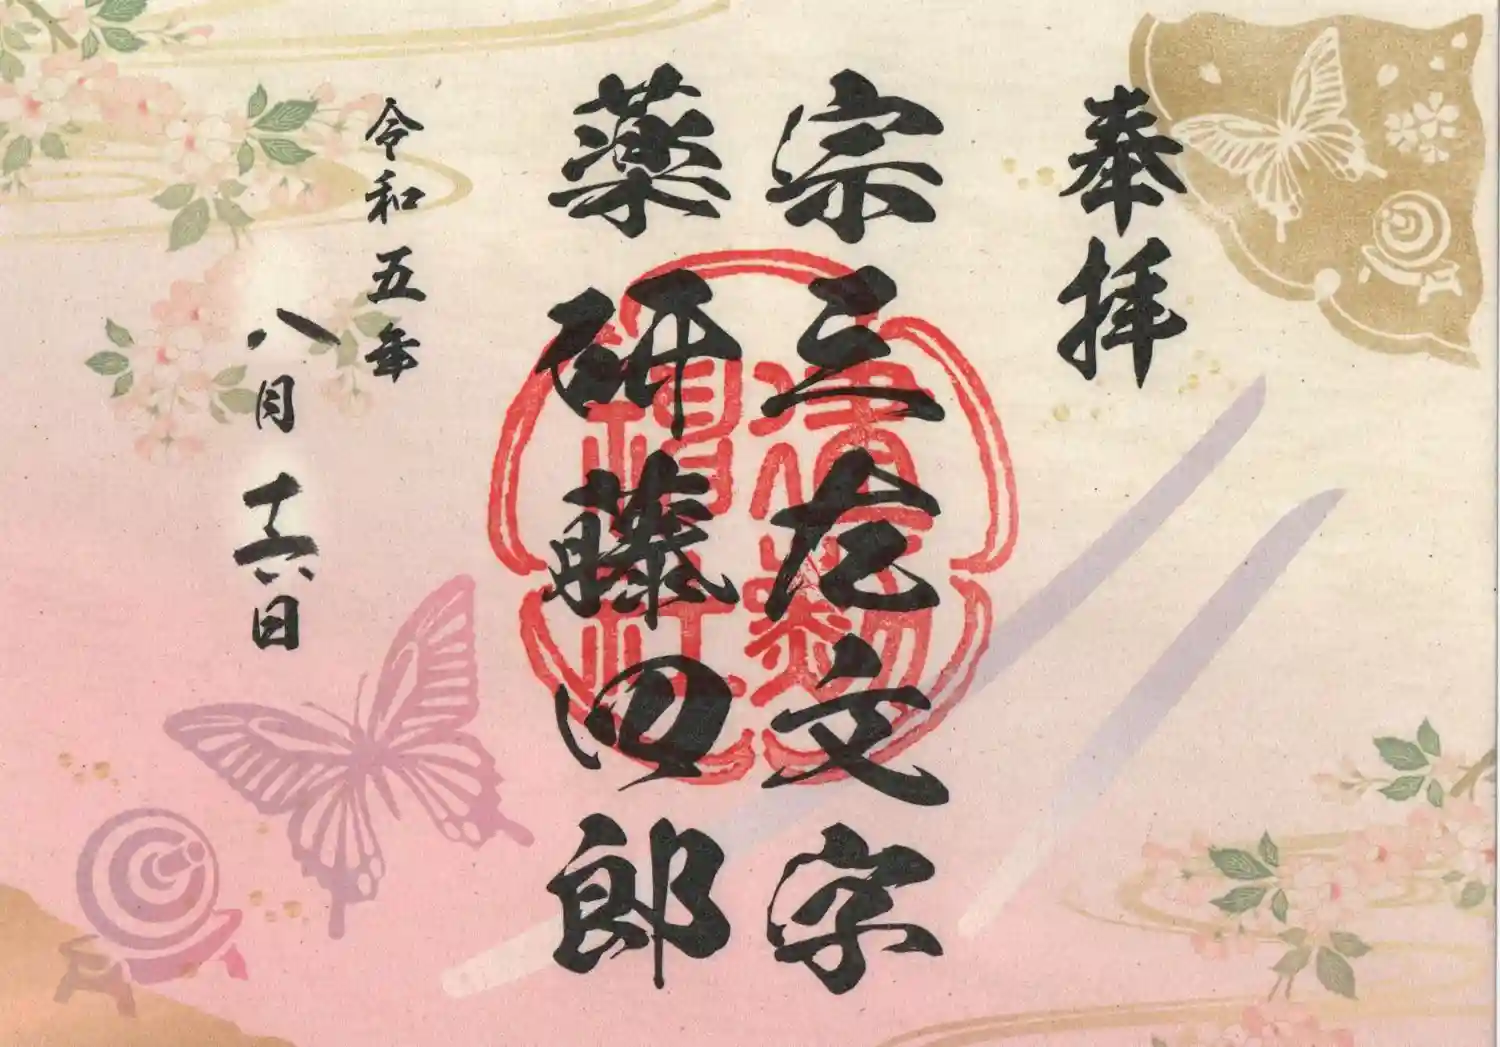 奉拝
宗三左文字
薬研藤四郎
建勲神社
令和五年
八月十六日